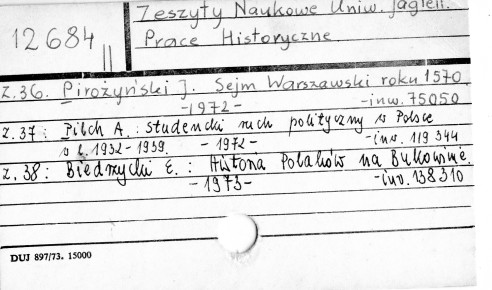 Zeszyty Naukowe Uniw. Jagiell.
12684 II
Prace Historyczne
z.36. Pirożyński J. Sejm Warszawski roku 1570.
-1972- -inw. 75050
z.37: Pilch A.: studencki ruch polityczny w Polsce
w l. 1932-1939. - 1972- -inw. 119 344
z.38: Biedrzycki E.: Historia Polaków na Bukowinie.
- 1973- -inw. 138310
DUJ 897/73. 15000